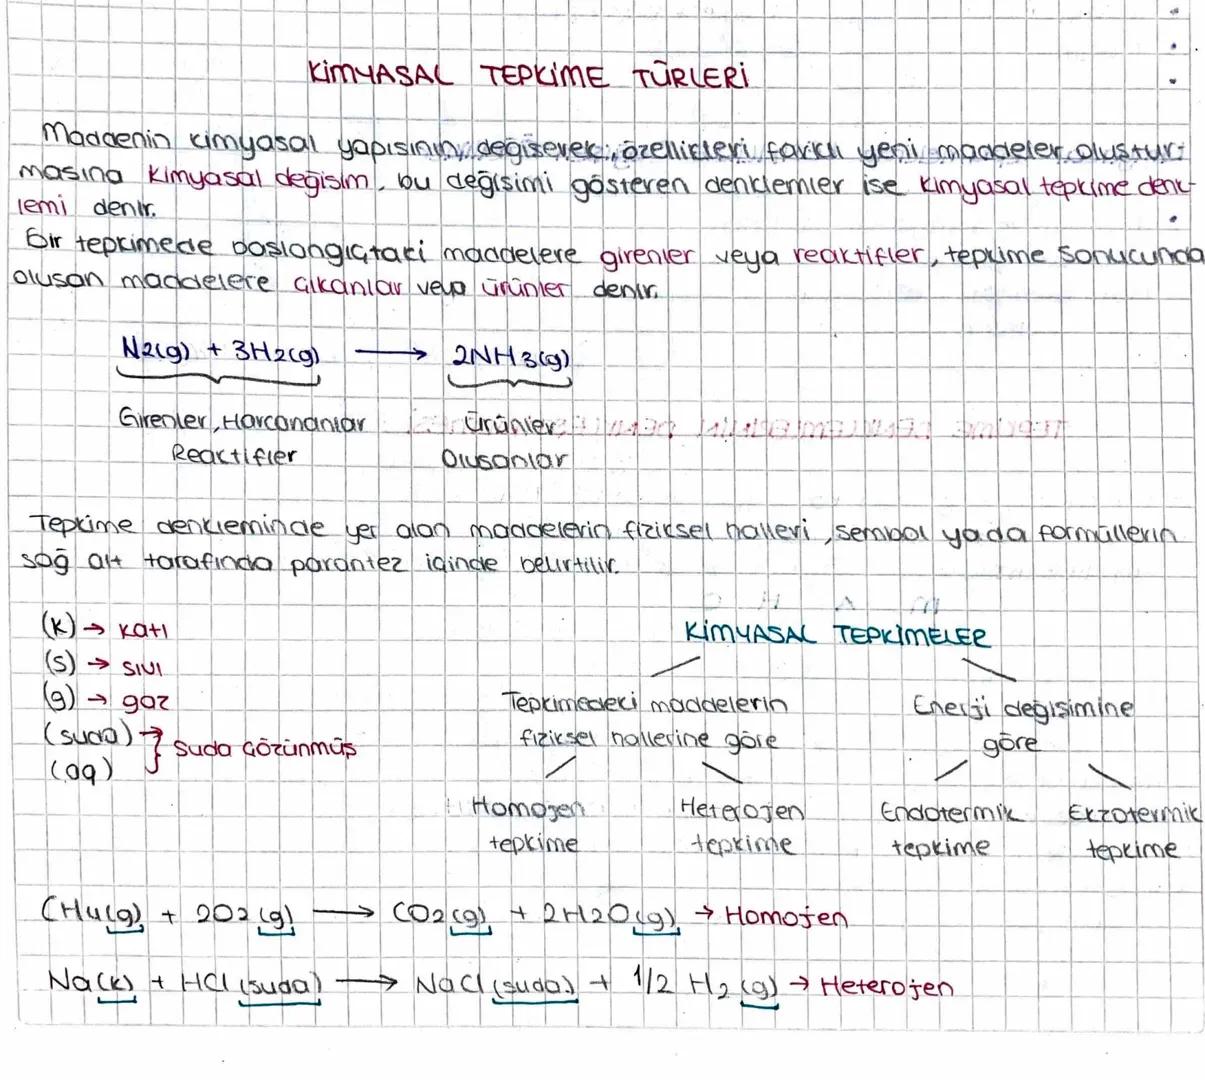 KİMYASAL TEPKİME TÜRLERİ
Maddenin kimyasal yapısının değişerek, özellikleri farklı yeni maddeler oluştur-
masına kimyasal değişim, bu değişimi gösteren denklemler ise kimyasal tepkime denk-
lemi denir.
Bir tepkimede başlangıçtaki maddelere girenler veya reaktifler, tepkime sonucunda
oluşan maddelere çıkanlar veya ürünler denir.
N2(g) + 3H2(g) → 2NH3(g)
Girenler, Harcananlar Ürünler
Reaktifler Oluşanlar
Tepkime denkleminde yer alan maddelerin fiziksel halleri, sembol yada formüllerin
sağ alt tarafında parantez içinde belirtilir.
(k) → katı
(s) → sıvı
(g) → gaz
(suda) → } suda çözünmüş
(aq)
KİMYASAL TEPKİMELER
Tepkimedeki maddelerin Enerji değişimine
fiziksel hallerine göre göre
Homojen Heterojen Endotermik Ekzotermik
tepkime tepkime tepkime tepkime
CH4(g) + 2O2(g) → CO2(g) + 2H2O(g) → Homojen
Na(k) + HCl(suda) → NaCl(suda) + 1/2 H2(g) → Heterojen